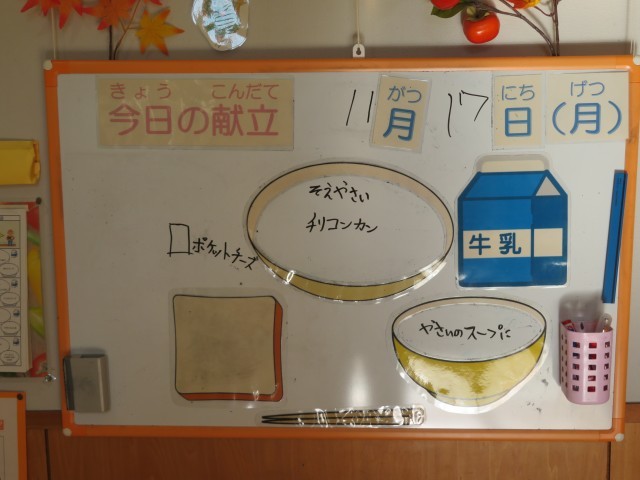 きょう こんだて
今日の献立
11 がつ 17 にち げつ
月 日 (月)
そえやさい
チリコンカン
ポケットチーズ
牛乳
やさいのスープに